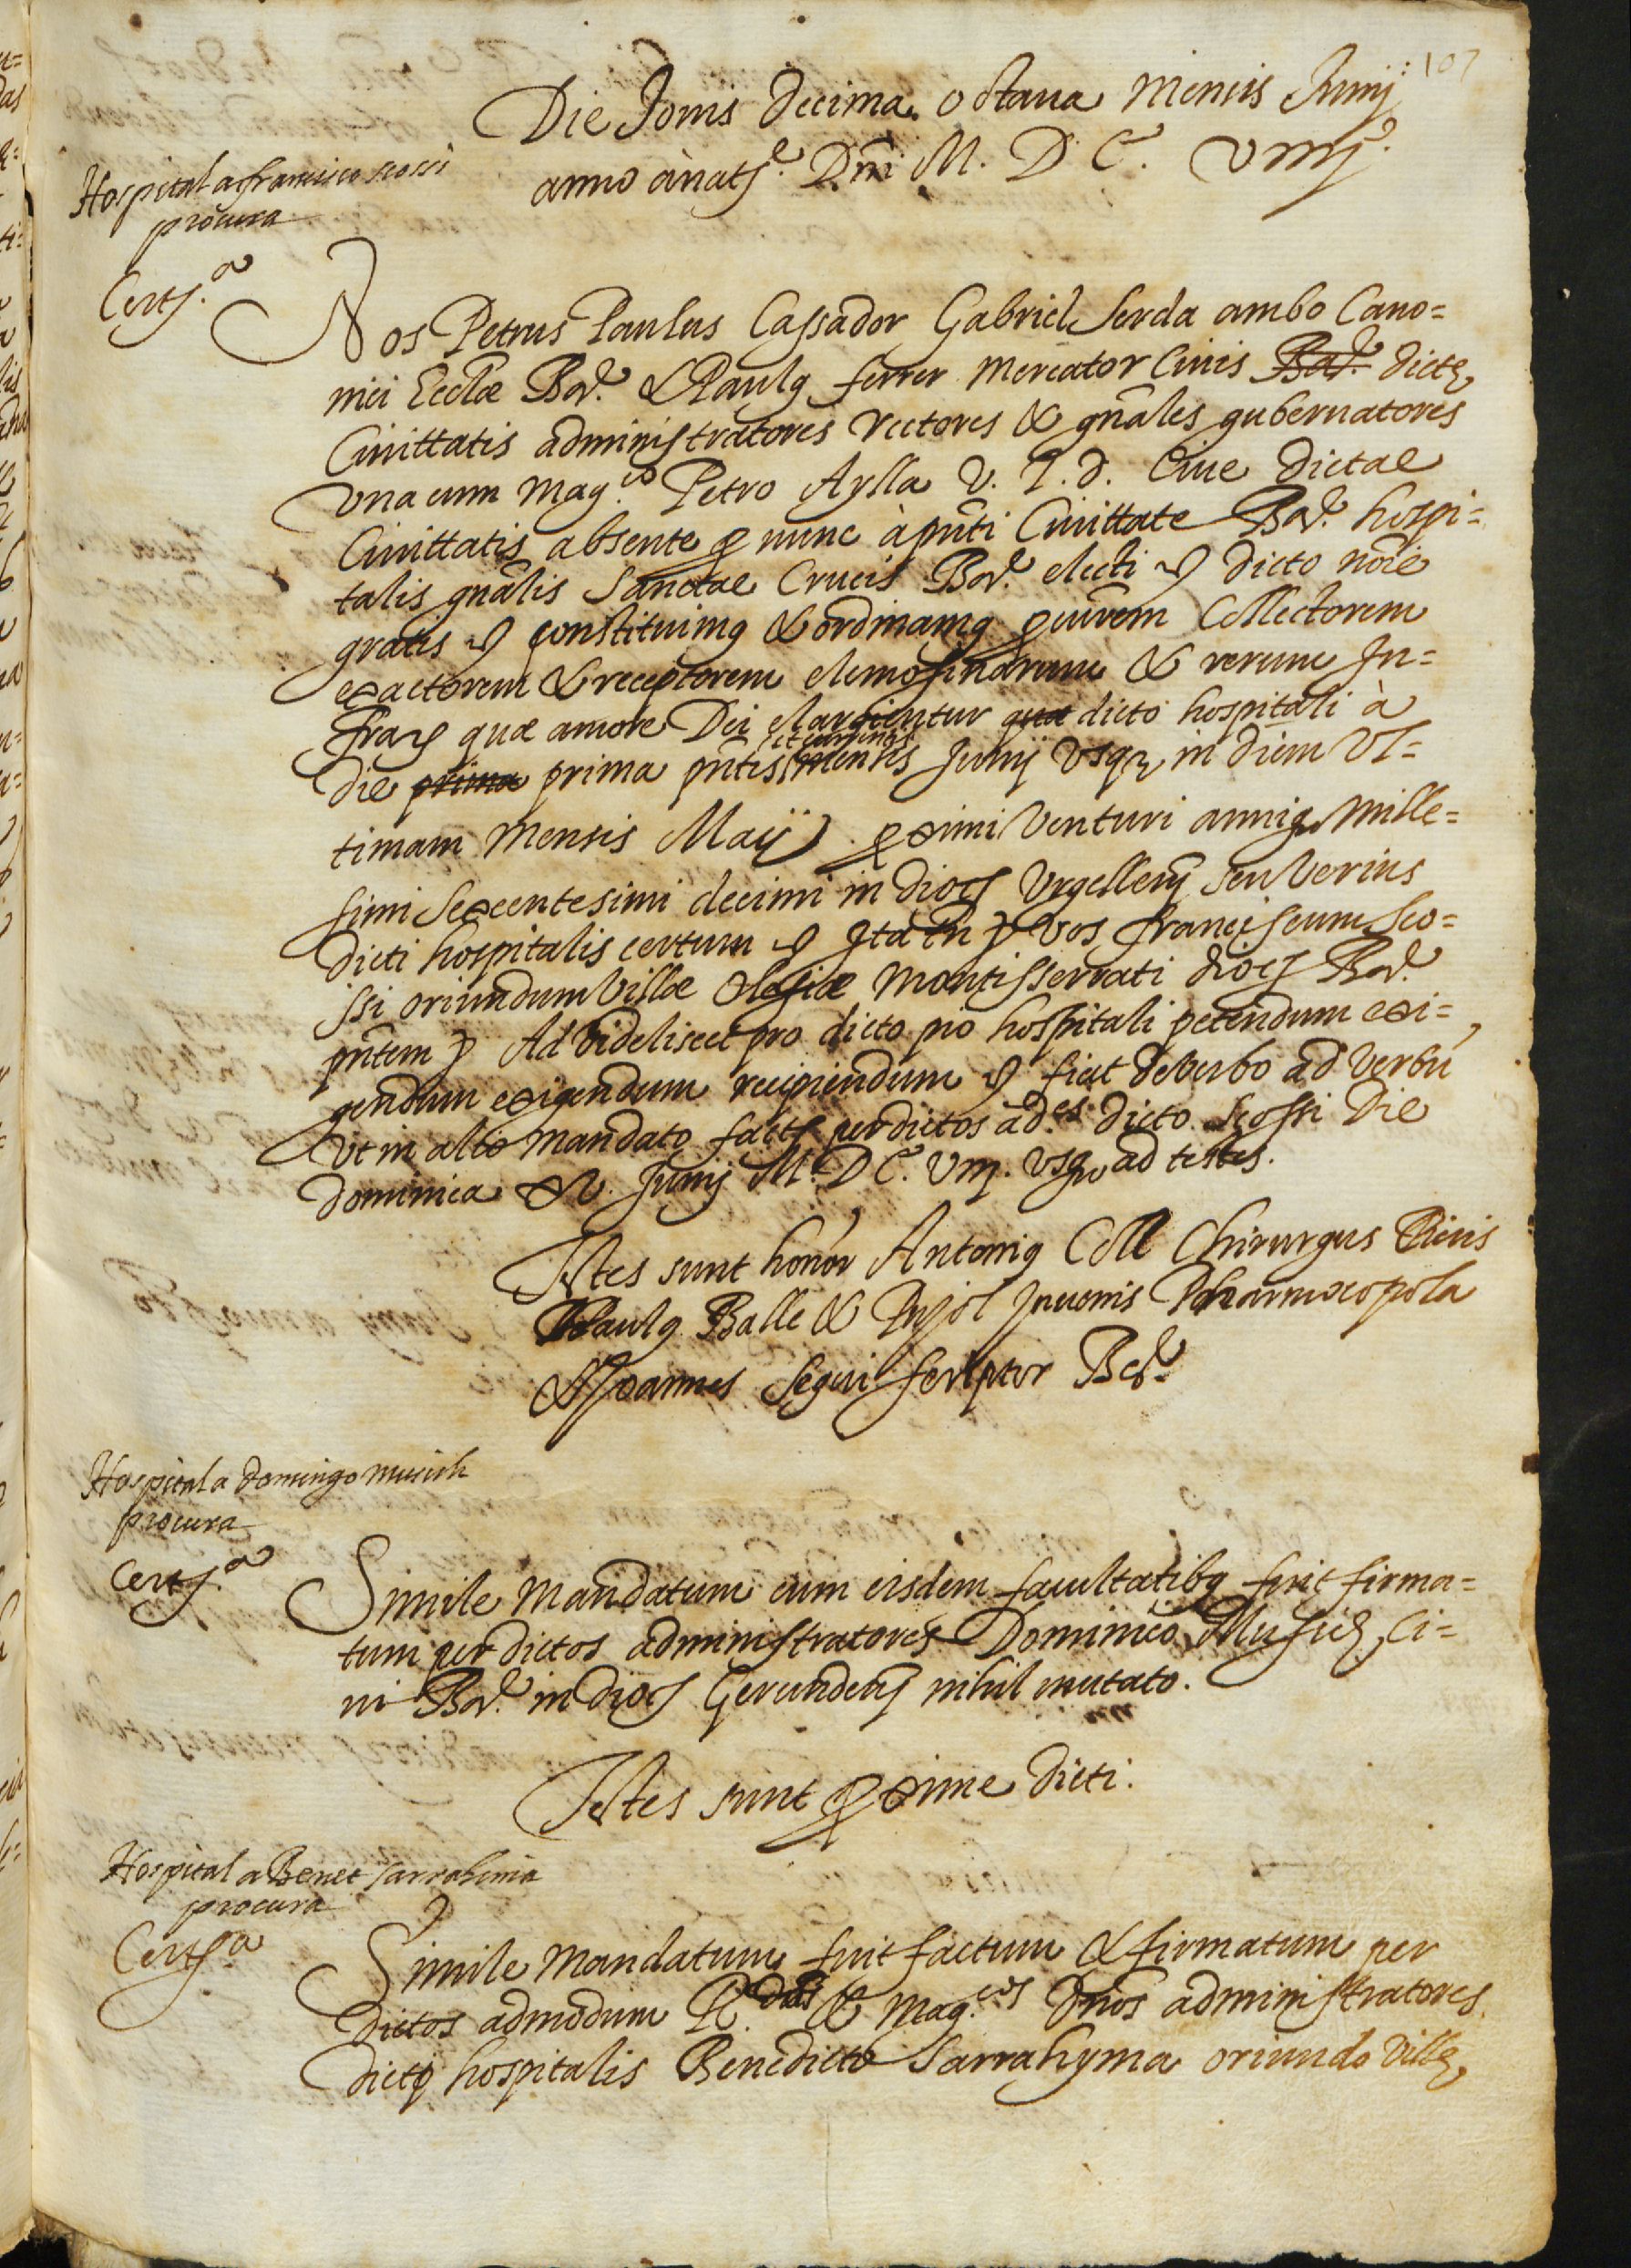 107
Die Jouis decima octaua mensis Junij
anno à natte. Dni M. D C. VIIIJ.
Hospital a francisco scossi
procura
Certf.a
Nos Petrus Paulus Cassador Gabriel Serda ambo Cano=
nici Ecclæ Bar. & Paulus ferrer mercator Ciuis Bar. dictę
Ciuittatis administratores rectores & gñales gubernatores
vna cum mag.co Petro Aylla V. J. d. Ciue dictae
Ciuittatis absente p nunc à pñti Ciuittate Bar. hospi=
talis gñalis Sanctae Crucis Bar. electi & dicto noie
gratis & constituimus & ordinamus procurem Collectorem
exactorem & receptorem elemosinarum & rerum In=
frar quæ amore Dei elargientur qua dicto hospitali à
die prima prima pñtis et currentis mensis Junij vsq; in diem vl=
timam mensis Maij proximi venturi anniq; mille=
simi sexcentesimi decimi in dioc Vrgellen seu verius
dicti hospitalis certum & Ita tñ & vos franciscum Sco=
ssi oriundum Villæ Olesiæ Montisserrati dioc Bar.
pñtem & Ad videliscet pro dicto pio hospitali petendum exi=
gendum exigendum recipiendum & fiat de verbo ad verbũ
vt in alio mandato facto per dictos ad.es dicto Scossi die
dominica xv. Junij M. D C. VIIJ. vsq; ad testes.
Testes sunt honor Antonius Coll Chirurgus Ciuis
Paulus Balle & Pujol Juuenis Pharmacopola
& Joannes Segui scriptor Bar.
Hospital a domingo musich
procura
Certf.a
Simile mandatum cum eisdem facultatibus fuit firma=
tum per dictos administratores Dominico Musich Ci=
ui Bar. in dioc Gerunden nihil mutato.
Testes sunt proxime dicti.
Hospital a Benet sarrahima
procura
Certf.a
Simile mandatum fuit factum & firmatum per
dictos admodum R.dos & mag.cos Dños administratores
dicti hospitalis Benedicto Sarrahyma oriundo Villę